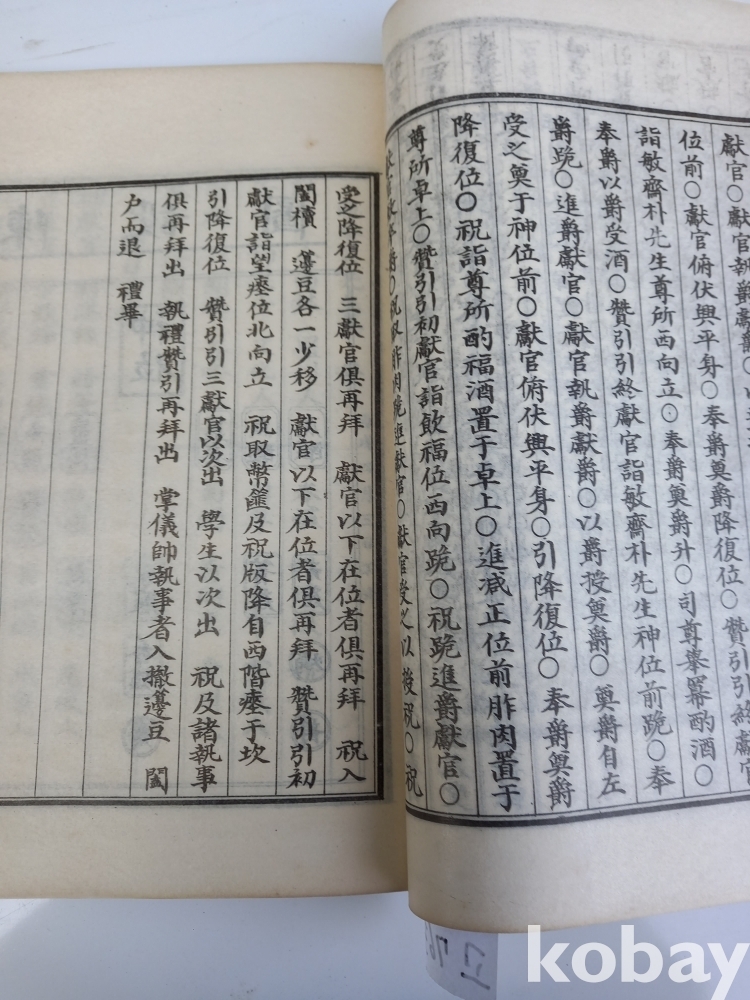 獻官○獻官執爵獻爵○以
位前○獻官俯伏興平身○奉爵奠爵降復位○贊引引終獻官
詣敏齋朴先生尊所西向立○奉爵奠爵升○司尊擧冪酌酒○
奉爵以爵受酒○贊引引終獻官詣敏齋朴先生神位前跪○奉
爵跪○進爵獻官○獻官執爵獻爵○以爵授奠爵○奠爵自左
受之奠于神位前○獻官俯伏興平身○引降復位○奉爵與爵
降復位○祝詣尊所酌福酒置于卓上○進减正位前胙肉置于
尊所卓上○贊引引初獻官詣飮福位西向跪○祝跪進爵獻官○
爵○祝取胙肉跪進獻官○獻官受之以授祝○祝
受之降復位 三獻官俱再拜 獻官以下在位者俱再拜 祝入
闔櫝 籩豆各一少移 獻官以下在位者俱再拜 贊引引初
獻官詣望瘞位北向立 祝取幣篚及祝版降自西階瘞于坎
引降復位 贊引引三獻官以次出 學生以次出 祝及諸執事
俱再拜出 執禮贊引再拜出 掌儀帥執事者入撤籩豆 闔
户而退 禮畢
kobay